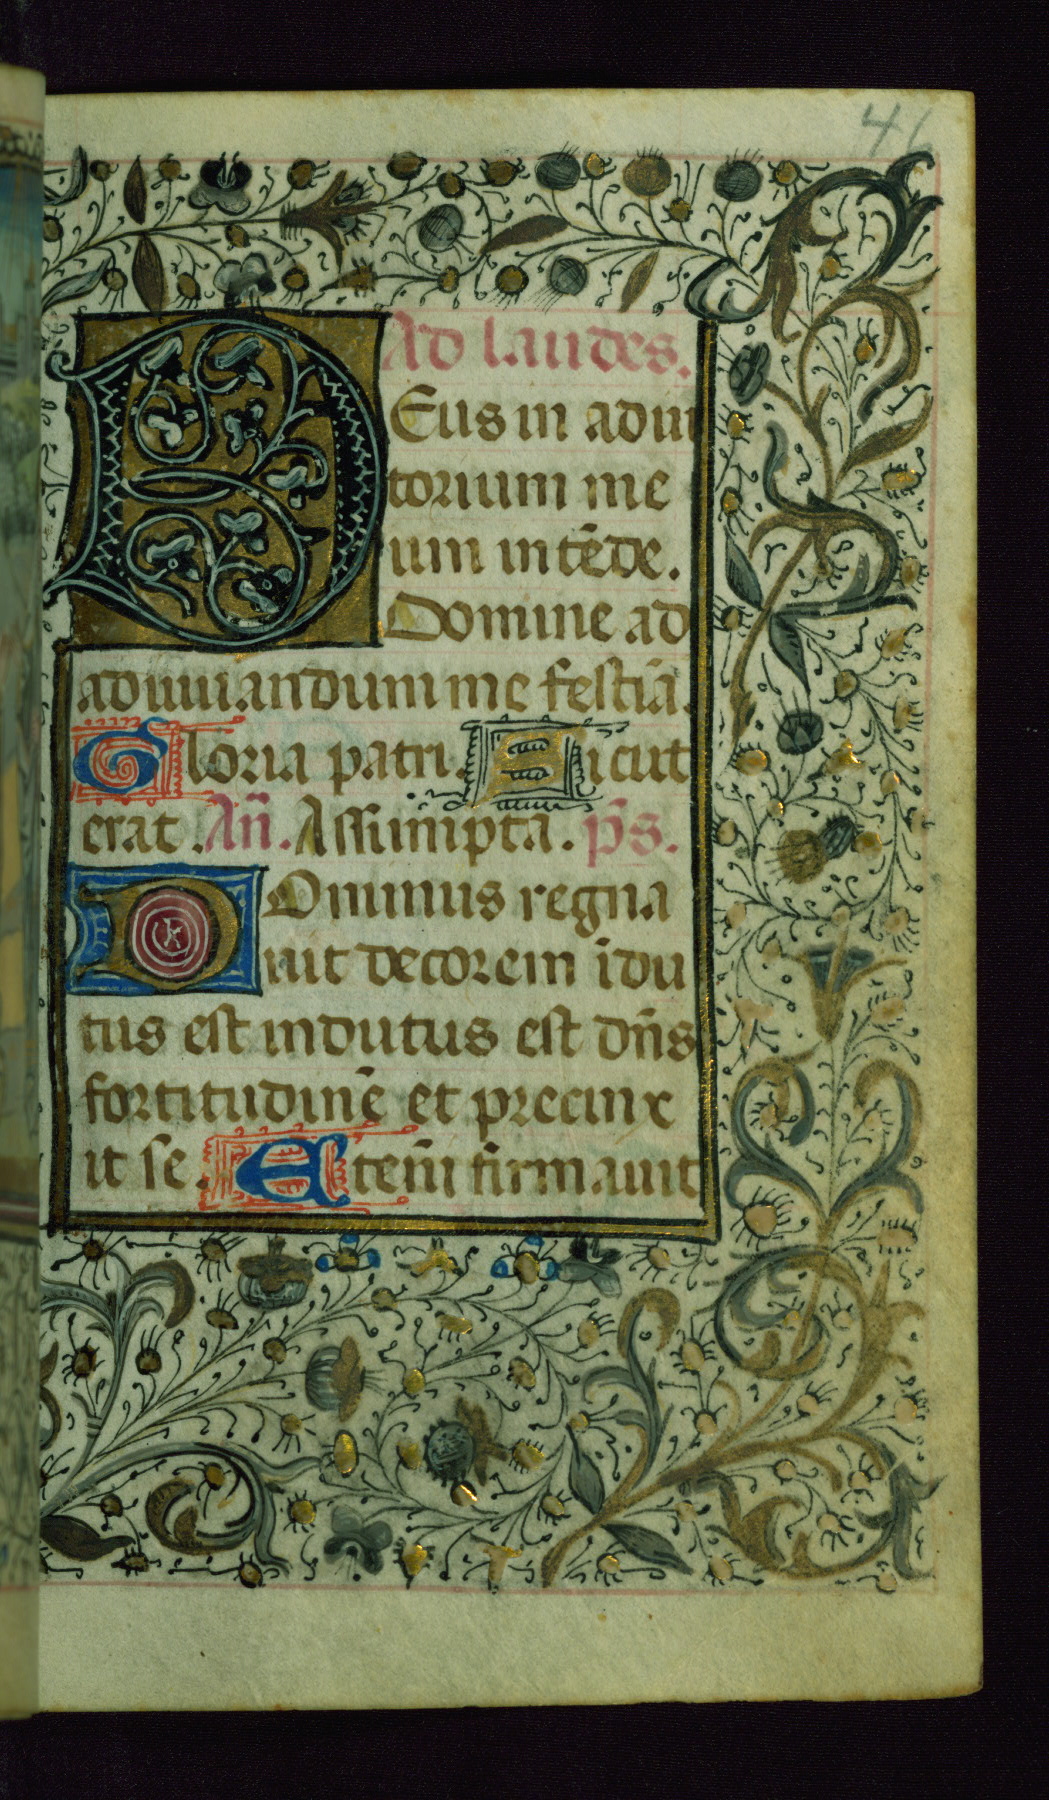 46
Ad laudes.
Deus in adiu
torium me
um intēde.
Domine ad
adiuuiandum me festiā.
Gloria patri. Sicut
erat. Añ. Assumpta. p̄s.
Dominus regna
uit decorem īdu
tus est indutus est dn̄s
fortitudinē et precinx
it se. Eteni̅ firmauit